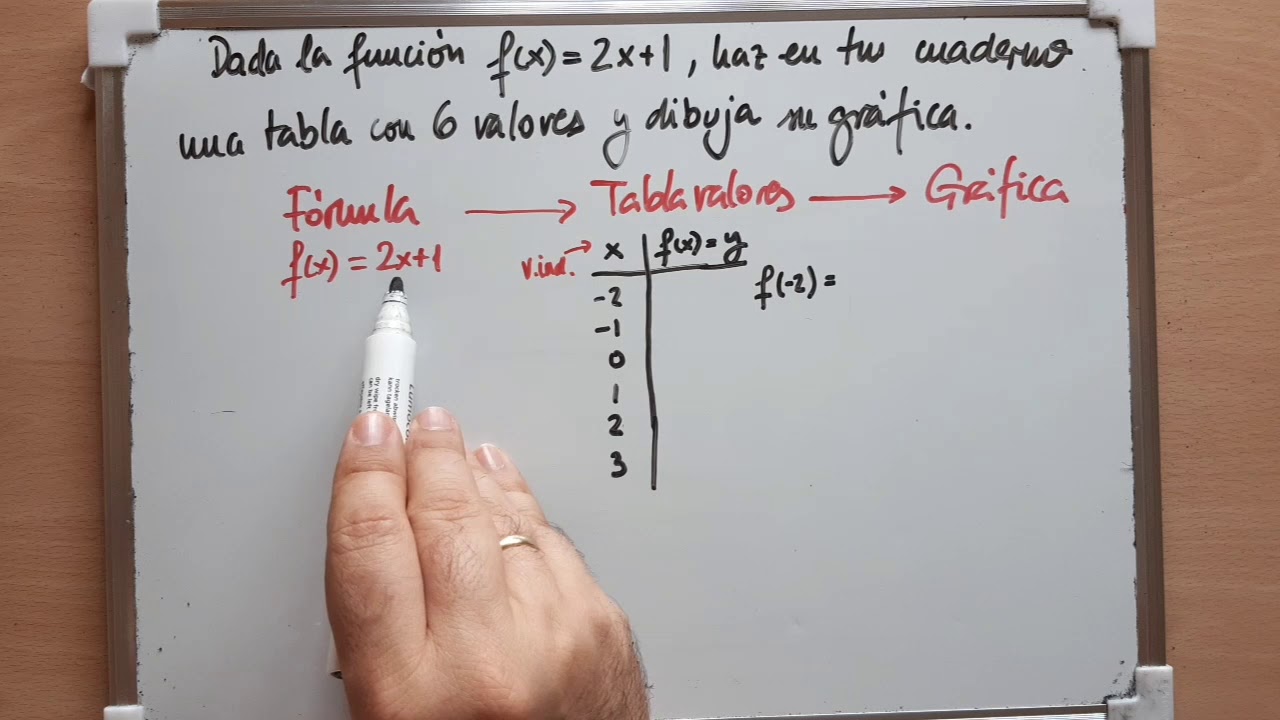 Dada la función f(x) = 2x+1, haz en tu cuaderno
una tabla con 6 valores y dibuja su gráfica.
Fórmula → Tabla valores → Gráfica
f(x) = 2x+1
v.ind. → x | f(x) = y
-2 f(-2) =
-1
0
1
2
3